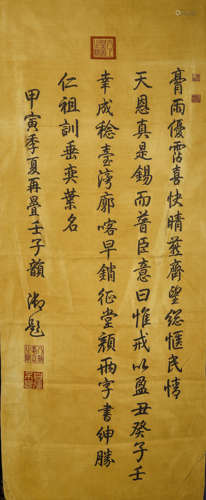 膏雨優霑喜快晴慈齊望慰愜民情
天恩真是錫而普臣意曰惟戒以盈丑癸子壬
幸成稔臺灣廓喀早銷征堂顏兩字書紳勝
仁祖訓垂奕葉名
甲寅季夏再疊壬子韻 御題